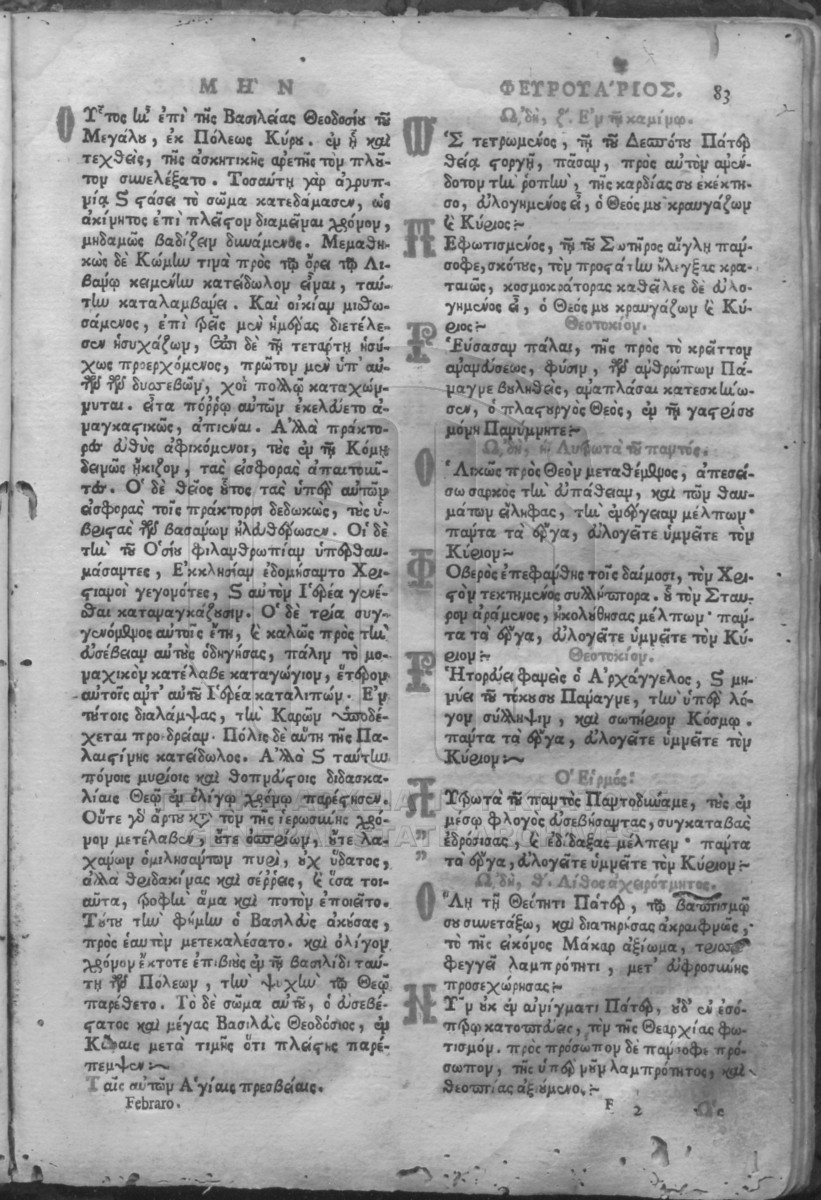 ΜΗῊΝ
ΦΕΥΡΟΥΑΡΙΟΣ. 83
Οὗτος ἦν ἐπὶ τῆς Βασιλείας Θεοδοσίου τοῦ
Μεγάλου, ἐκ Πόλεως Κύρου. ἐν ᾗ καὶ
τεχθεὶς, τῆς ἀσκητικῆς ἀρετῆς τὸν πλοῦ-
τον συνελέξατο. Τοσαύτῃ γὰρ ἀγρυπ-
νίᾳ καὶ στάσει τὸ σῶμα κατεδάμασεν, ὡς
ἀκίνητος ἐπὶ πλεῖστον διαμεῖναι χρόνον,
μηδαμῶς βαδίζειν δυνάμενος. Μεμαθη-
κὼς δὲ Κώμην τινὰ πρὸς τῷ ὄρει τῷ Λι-
βάνῳ κειμένην κατείδωλον εἶναι, ταύ-
την καταλαμβάνει. Καὶ οἰκίαν μισθω-
σάμενος, ἐπὶ τρεῖς μὲν ἡμέρας διετέλε-
σεν ἡσυχάζων, ἐπὶ δὲ τῇ τετάρτῃ ἡσύ-
χως προερχόμενος, πρῶτον μὲν ὑπ' αὐ-
τῶν τῶν δυσσεβῶν, χοῒ πολλῷ καταχών-
νυται. εἶτα πόῤῥω αὐτῶν ἐκελεύετο ἀ-
ναγκαστικῶς, ἀπιέναι. Ἀλλὰ πράκτο-
ρες εὐθὺς ἀφικόμενοι, τοὺς ἐν τῇ Κώμῃ
δεινῶς ᾔκιζον, τὰς εἰσφορὰς ἀπαιτοῦν-
τες. Ὁ δὲ θεῖος οὗτος τὰς ὑπὲρ αὐτῶν
εἰσφορὰς τοῖς πράκτορσι δεδωκὼς, τοὺς ὑ-
βριστὰς τῶν βασάνων ἠλευθέρωσεν. Οἱ δὲ
τὴν τοῦ Ὁσίου φιλανθρωπίαν ὑπερθαυ-
μάσαντες, Ἐκκλησίαν ἐδομήσαντο Χρι-
στιανοὶ γεγονότες, καὶ αὐτὸν Ἱερέα γενέ-
σθαι καταναγκάζουσιν. Ὁ δὲ τρία συγ-
γενόμενος αὐτοῖς ἔτη, καὶ καλῶς πρὸς τὴν
εὐσέβειαν αὐτοὺς ὁδηγήσας, πάλιν τὸ μο-
ναχικὸν κατέλαβε καταγώγιον, ἕτερον
αὐτοῖς ἀντ' αὐτοῦ Ἱερέα καταλιπών. Ἐν
τούτοις διαλάμψας, τὴν Καρῶν ὑποδέ-
χεται προεδρείαν. Πόλις δὲ αὕτη τῆς Πα-
λαιστίνης κατείδωλος. Ἀλλὰ καὶ ταύτην
πόνοις μυρίοις καὶ θοπνεύστοις διδασκα-
λίαις Θεῷ ἐν ὀλίγῳ χρόνῳ παρέστησεν.
Οὔτε γὰρ ἄρτου κατὰ τὸν τῆς ἱερωσύνης χρό-
νον μετέλαβεν, οὔτε ὀσπρίων, οὔτε λα-
χάνων ὁμιλησάντων πυρὶ, οὐχ ὕδατος,
ἀλλὰ θριδακίνας καὶ σέρρεις, καὶ ὅσα τοι-
αῦτα, τροφὴν ἅμα καὶ ποτὸν ἐποιεῖτο.
Τούτου τὴν φήμην ὁ Βασιλεὺς ἀκούσας,
πρὸς ἑαυτὸν μετεκαλέσατο. καὶ ὀλίγον
χρόνον ἔκτοτε ἐπιβιοὺς ἐν τῇ βασιλίδι ταύ-
τῃ τῶν Πόλεων, τὴν ψυχὴν τῷ Θεῷ
παρέθετο. Τὸ δὲ σῶμα αὐτοῦ, ὁ εὐσεβέ-
στατος καὶ μέγας Βασιλεὺς Θεοδόσιος, ἐν
μετὰ τιμῆς ὅτι πλείστης παρέ-
πεμψεν:
Ταῖς αὐτῶν Ἁγίαις πρεσβείαις.
Febraro.
Ὠδὴ, ζ. Ἐν τῇ καμίνῳ.
Ὡς τετρωμένος, τῇ τοῦ Δεσπότου Πάτερ
θείᾳ στοργῇ, πᾶσαν, πρὸς αὐτὸν ἀνέν-
δοτον τὴν ῥοπὴν, τῆς καρδίας σου ἐκέκτη-
σο, εὐλογημένος εἶ, ὁ Θεός μου κραυγάζων
καὶ Κύριος:
Πεφωτισμένος, τῇ τοῦ Σωτῆρος αἴγλῃ πάν-
σοφε, σκότους, τὸν προστάτην ἤλεγξας κρα-
ταιῶς, κοσμοκράτορας καθεῖλες δὲ εὐλο-
γημένος εἶ, ὁ Θεός μου κραυγάζων καὶ Κύ-
ριος:
Θεοτοκίον.
Ῥεύσασαν πάλαι, τῆς πρὸς τὸ κρεῖττον
ἀνανεύσεως, φύσιν, τῶν ἀνθρώπων Πά-
ναγνε βουληθεὶς, ἀναπλάσαι κατεσκήνω-
σεν, ὁ πλαστουργὸς Θεὸς, ἐν τῇ γαστρί σου
μόνη Πανύμνητε:
Ὠδὴ, η. Λυτρωτὰ τοῦ παντός.
Ὁλικῶς πρὸς Θεὸν μεταθέμενος, ἀπεσεί-
σω σαρκὸς τὴν εὐπάθειαν, καὶ τῶν θαυ-
μάτων εἴληφας, τὴν ἐνέργειαν μέλπων·
πάντα τὰ ἔργα, εὐλογεῖτε ὑμνεῖτε τὸν
Κύριον:
Φοβερὸς ἐπεφάνθης τοῖς δαίμοσι, τὸν Χρι-
στὸν κεκτημένος συλλήπτορα. οὗ τὸν Σταυ-
ρὸν ἀράμενος, ἠκολούθησας μέλπων· πάν-
τα τὰ ἔργα, εὐλογεῖτε ὑμνεῖτε τὸν Κύ-
ριον:
Θεοτοκίον.
Ῥητορεύει φανεὶς ὁ Ἀρχάγγελος, καὶ μη-
νύει τοῦ τόκου σου Πάναγνε, τὴν ὑπὲρ λό-
γον σύλληψιν, καὶ σωτήριον Κόσμῳ.
πάντα τὰ ἔργα, εὐλογεῖτε ὑμνεῖτε τὸν
Κύριον:
Ὁ Εἱρμός:
Λυτρωτὰ τοῦ παντὸς Παντοδύναμε, τοὺς ἐν
μέσῳ φλογὸς εὐσεβήσαντας, συγκαταβὰς
ἐδρόσισας, καὶ ἐδίδαξας μέλπειν· πάντα
τὰ ἔργα, εὐλογεῖτε ὑμνεῖτε τὸν Κύριον:
Ὠδὴ, θ. Λίθος ἀχειρότμητος.
Ὅλῃ τῇ Θεότητι Πάτερ, τῷ βαπτισμῷ
σου συνετάξω, καὶ διατηρήσας ἀκραιφνῶς,
τὸ τῆς εἰκόνος Μάκαρ ἀξίωμα, τρισσο-
φεγγεῖ λαμπρότητι, μετ' εὐφροσύνης
προσεχώρησας:
Νῦν οὐκ ἐν αἰνίγματι Πάτερ, οὐδ' ἐν ἐσό-
πτρῳ κατοπτεύεις, τὸν τῆς Θεαρχίας φω-
τισμόν. πρὸς πρόσωπον δὲ πάνσοφε πρό-
σωπον, τῆς ὑπὲρ νοῦν λαμπρότητος, καὶ
θεοπτίας ἀξιούμενος:
F 2 Ὡς